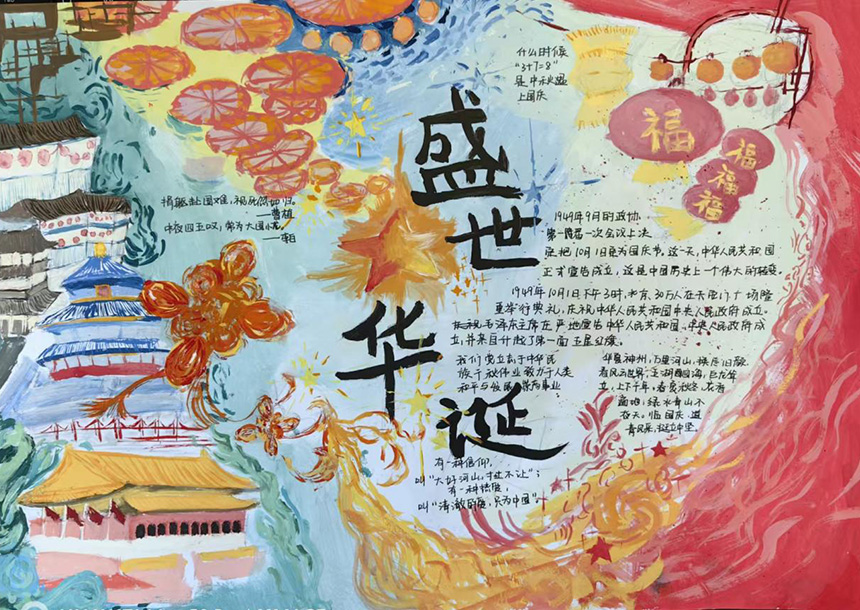 什么时候
"3+7=8"
是中秋遇
上国庆
盛世华诞
福
福
福
福
捐躯赴国难，视死忽如归。
——曹植
中夜四五叹，常为大国忧。
——李白
1949年9月的政协
第一届一次会议上决
定把10月1日定为国庆节。这一天，中华人民共和国
正式宣告成立，这是中国历史上一个伟大的转变。
1949年10月1日下午3时，北京30万人在天安门广场隆
重举行典礼，庆祝中华人民共和国中央人民政府成立。
毛泽东主席庄严地宣告中华人民共和国、中央人民政府成
立，并亲自升起了第一面五星红旗。
我们党立志于中华民
族千秋伟业，致力于人类
和平与发展崇高事业
华夏神州，万里河山，
看风云世界；五湖四海，巨龙笑
立，上下千年，春美秋冬，花香
遍地；绿水青山不
国庆道
有一种信仰，
叫"大好河山，寸土不让"；
有一种态度，
叫"清澈的爱，只为中国"